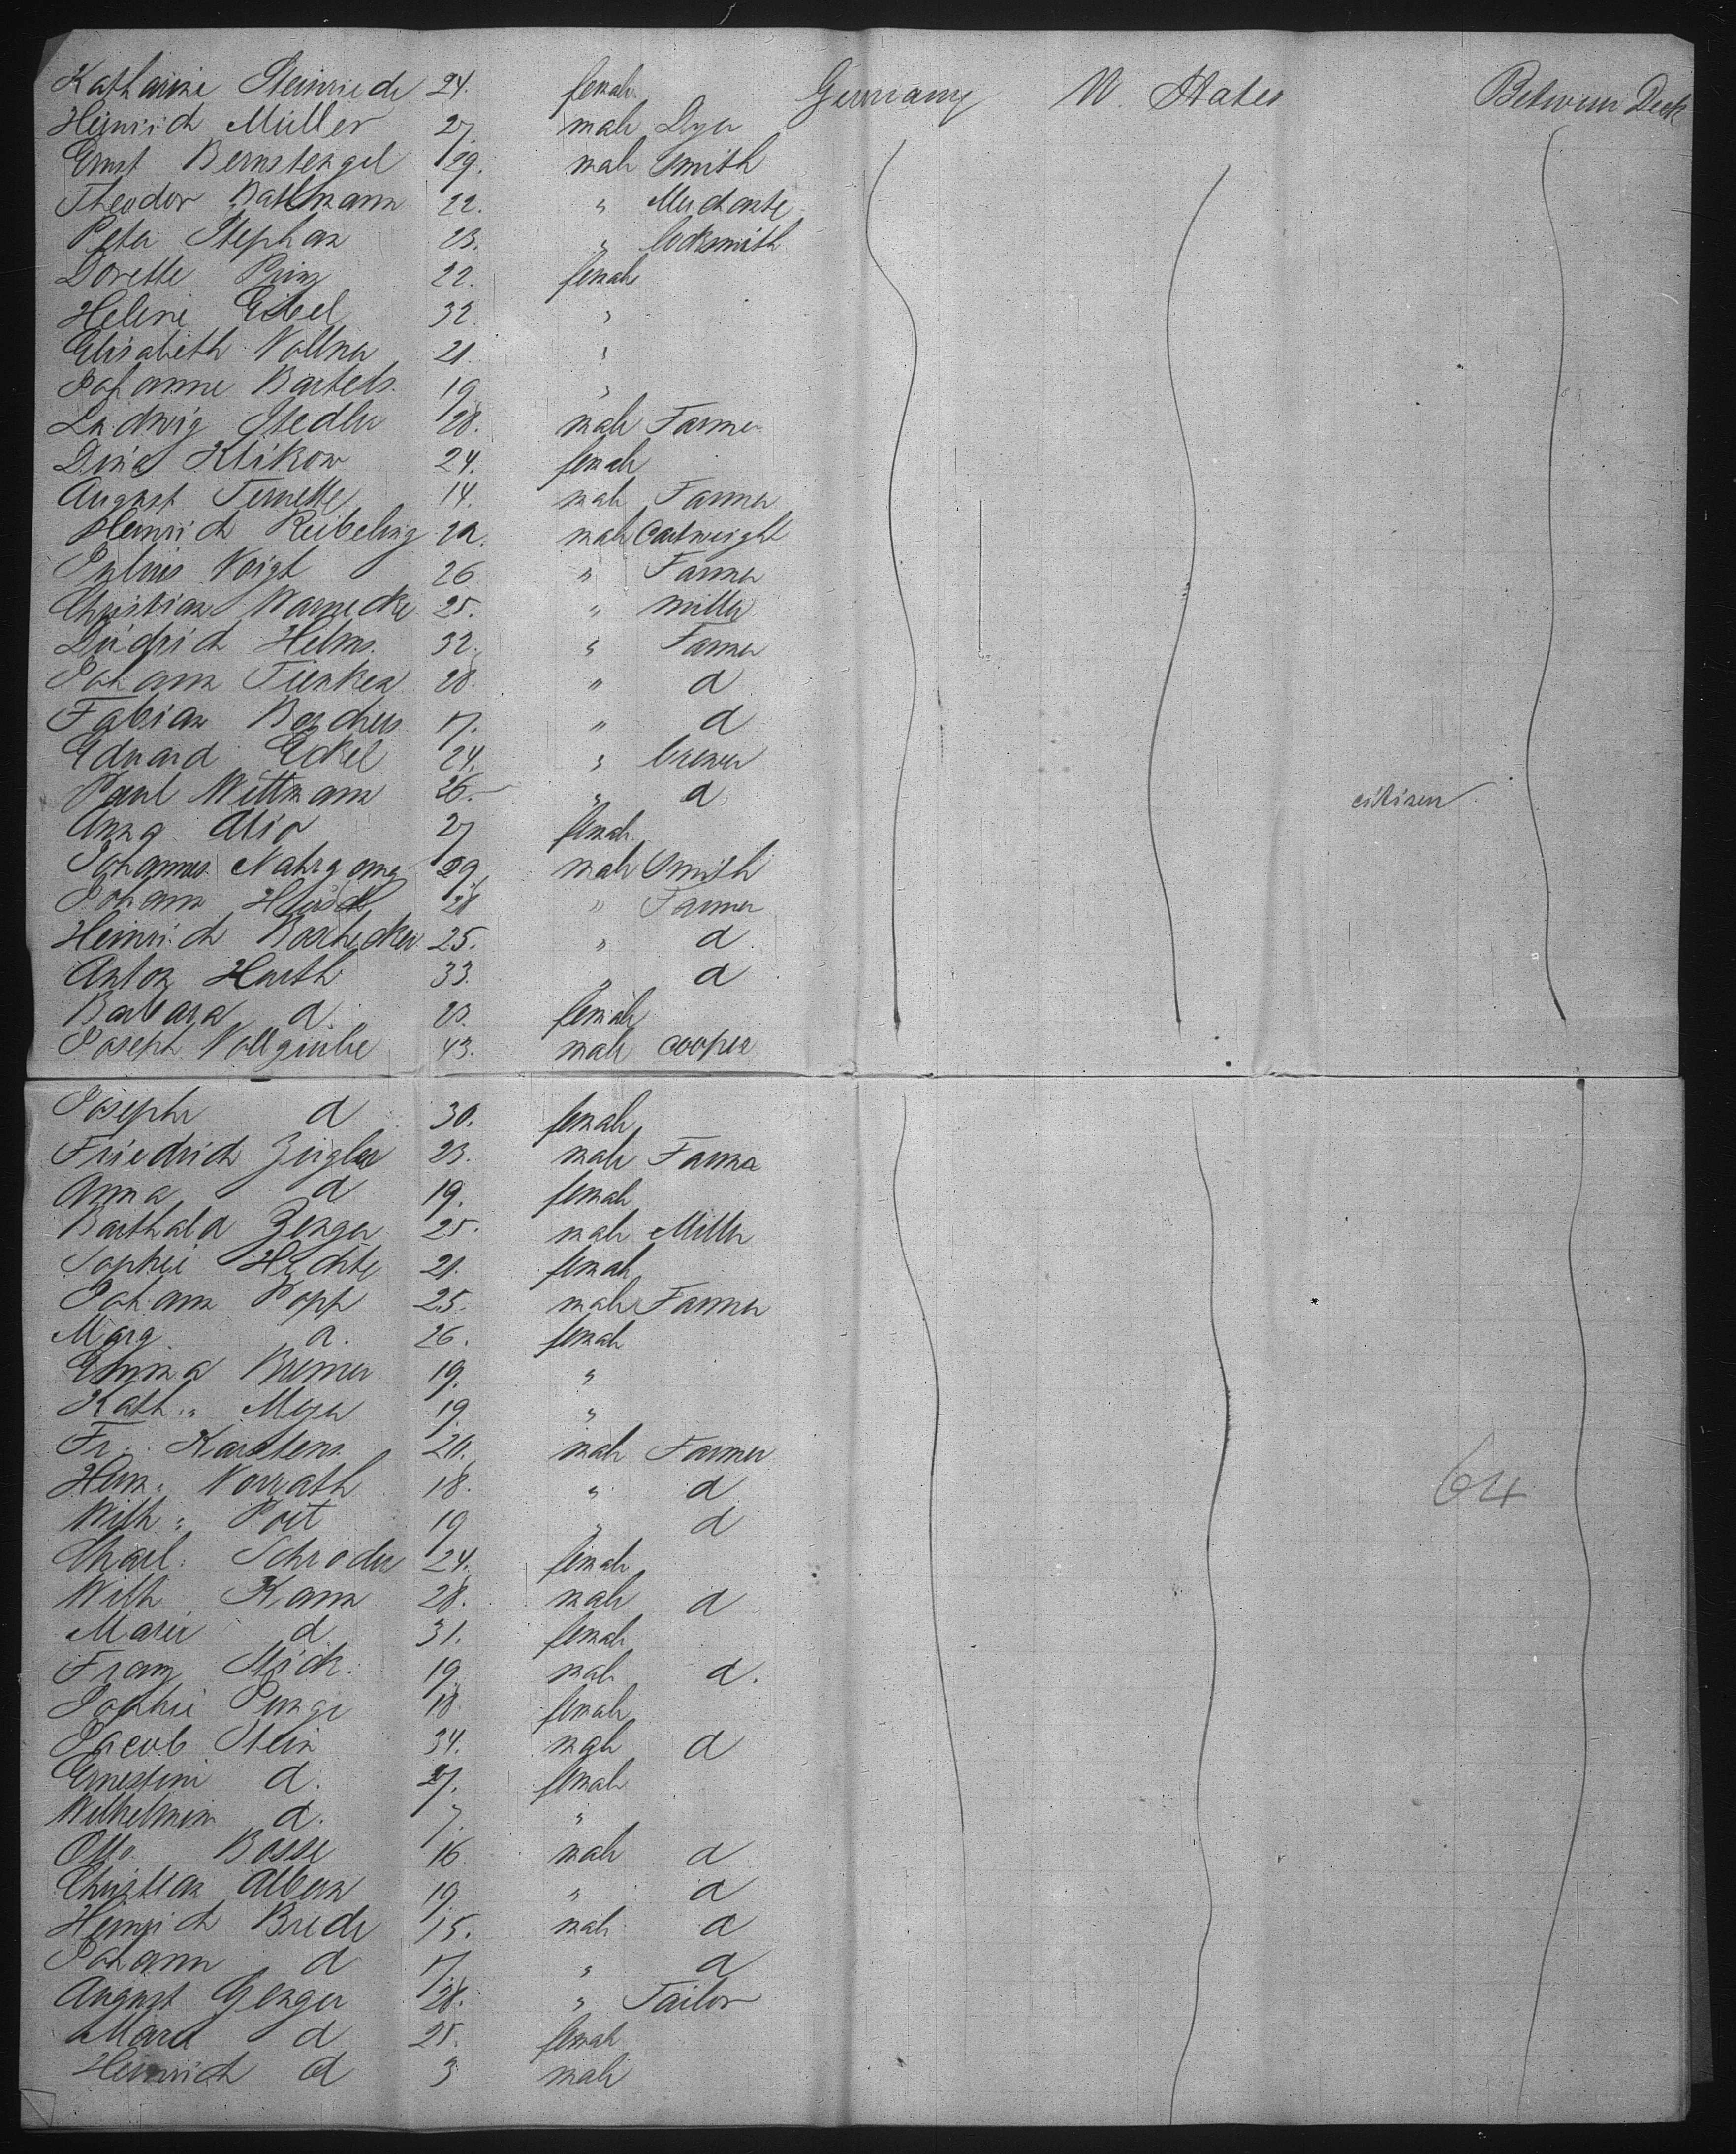 Katharine Steinriede 24. female Germany U. States Between Deck
Heinrich Müller 27 male Dyer
Ernst Bernstengel 29. male Smith
Theodor Bathmann 22. "
Peter Stephan 23. " locksmith
Dorette Prinz 22. female
Helene Eitel 32. "
Elisabeth Vollmer 21. "
Johanne Bartels. 19. "
Ludwig Stedler 28. male Farmer
Dina Klikow 24. female
August Ternette 14. male Farmer
Heinrich Reibeling male Cartwright
Julius Voigt 26 " Farmer
Christian Warnecke 25. " miller
Diedrich Helms. 32. " Farmer
Johann Tienken 28. " d
Fabian Borchers 17. " d
Eduard Eckel 24. " brewer
Paul Wittmann 26. " d citizen
Anna 27 female
Johannes Nahrgang 29. male Smith
Johann 28 " Farmer
Heinrich 25. " d
Anton Harth 33. " d
Barbara d. 23. female
Joseph 43. male cooper
Josephe d 30. female
Friedrich Ziegler 23. male Farmer
Anna d 19. female
Barthold Zenger 25. male Miller
Sophie Hechte 21. female
Johann Popp 25. male Farmer
Marg d. 26. female
Emma Bremer 19. "
Kath. Meyer 19. "
Fr. Karstens. 20. male Farmer
Hein. Vorrath 18. " d
Wilh. Port 19 " d
Charl. Schroder 24. female
Wilh Kann 28. male d
Marie d 31. female
Franz Stick. 19. male d.
Sophie 18. female
Jacob Stein 34. male d
Ernestine d. 27. female
Wilhelmin d. 7. "
Otto Bosse 16 male d
Christian Albers 19. " d
Heinrich Brede 15. male d
Johann d 17. " d
August Genger 28. " Tailor
Marie d 25. female
Heinrich d 3 male
64